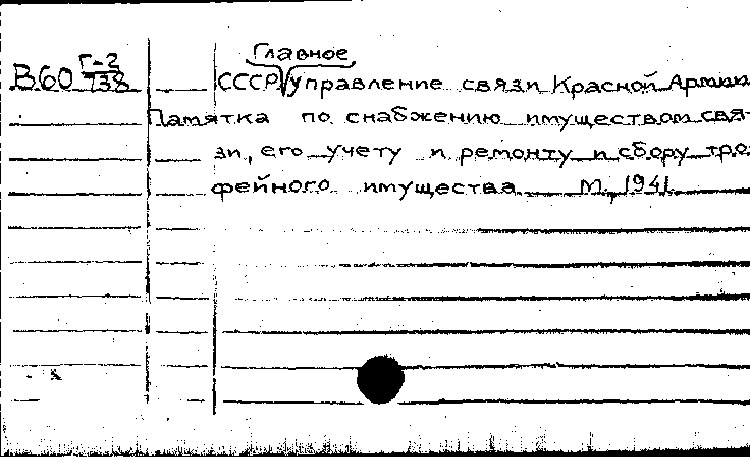 Главное
В60 Г-2/738 СССР управление связи Красной Армии
Памятка по снабжению имуществом свя-
зи, его учету и ремонту и сбору тро-
фейного имущества М., 1941